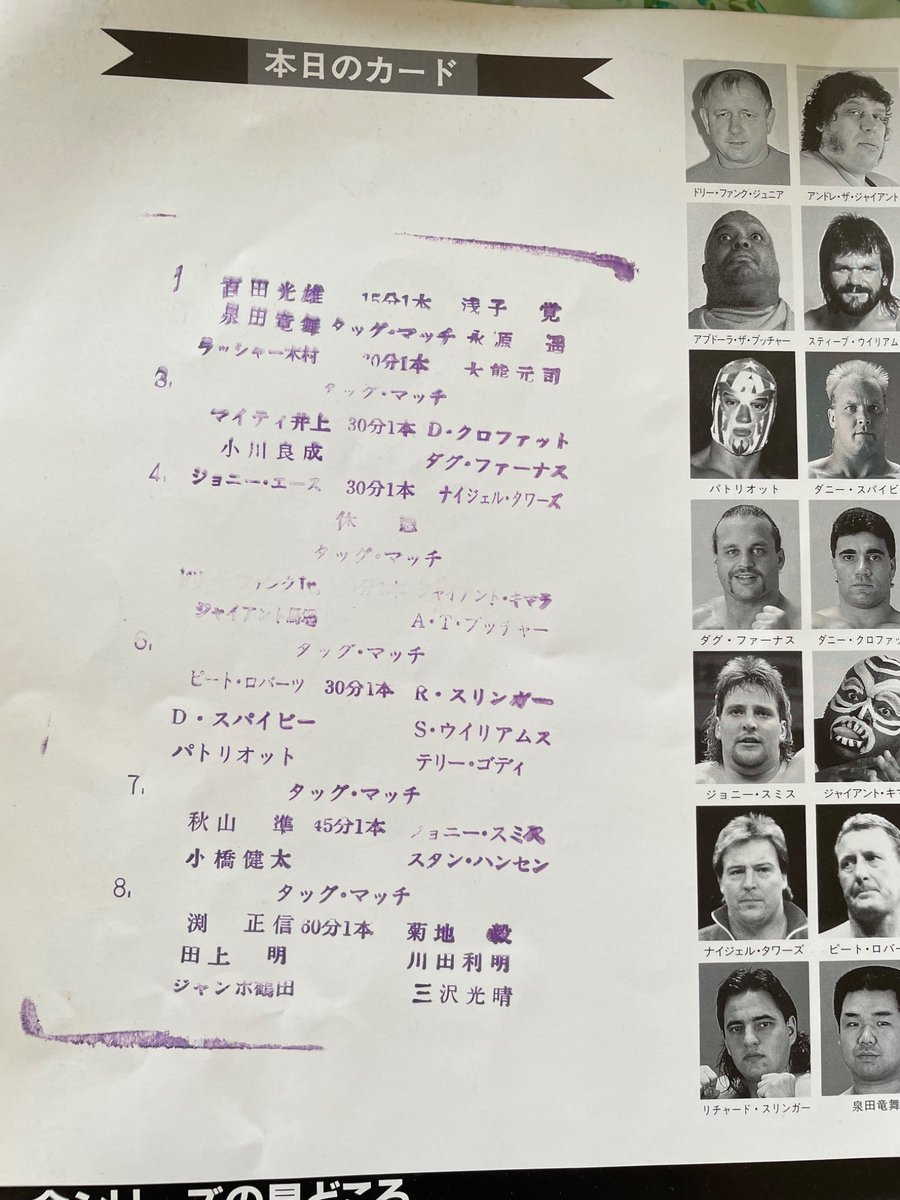 本日のカード
1
百田光雄 15分1本 浅子 覚
泉田竜舞 タッグ・マッチ 永原 遥
ラッシャー木村 20分1本 大熊元司
3.
タッグ・マッチ
マイティ井上 30分1本 D・クロファット
小川良成 ダグ・ファーナス
4. ジョニー・エース 30分1本 ナイジェル・タワーズ
休 憩
タッグ・マッチ
ジャイアント・キマラ
ジャイアント馬場 A・T・ブッチャー
6.
タッグ・マッチ
ピート・ロバーツ 30分1本 R・スリンガー
D・スパイビー S・ウイリアムス
パトリオット テリー・ゴディ
7.
タッグ・マッチ
秋山 準 45分1本 ジョニー・スミス
小橋健太 スタン・ハンセン
8.
タッグ・マッチ
渕 正信 60分1本 菊地 毅
田上 明 川田利明
ジャンボ鶴田 三沢光晴
ドリー・ファンク・ジュニア アンドレ・ザ・ジャイアント
アブドーラ・ザ・ブッチャー スティーブ・ウイリアム
パトリオット ダニー・スパイビ
ダグ・ファーナス ダニー・クロファッ
ジョニー・スミス ジャイアント・キマ
ナイジェル・タワーズ ピート・ロバー
リチャード・スリンガー 泉田竜舞
今シリーズの見どころ